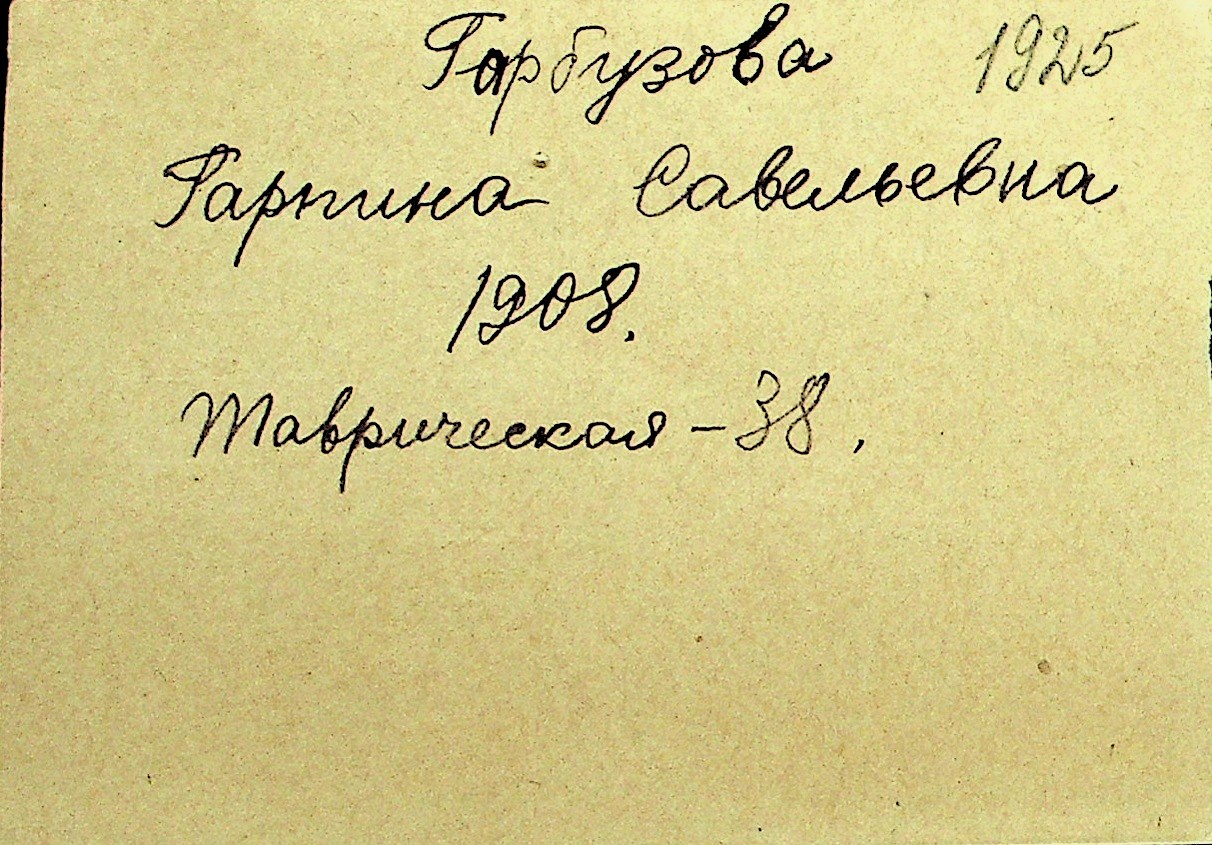 Гарбузова 1925
Гарпина Савельевна
1908.
Таврическая - 38.